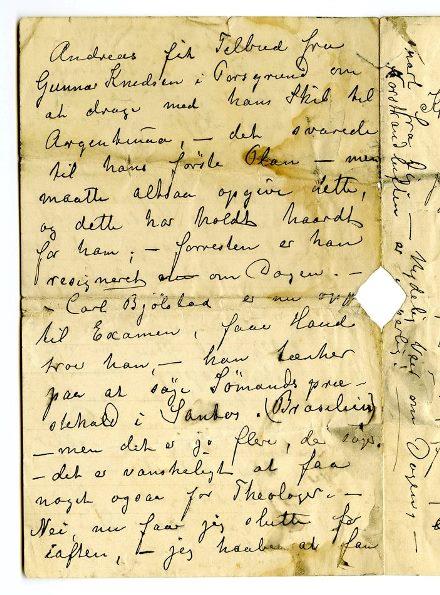 Andreas fik Tilbud fra
Gunnar Knudsen i Porsgrund om
at drage med hans Skib til
Argentinia, – det svarede
til hans første Plan – men
maatte altsaa opgive dette,
og dette har holdt haardt
for ham; – forresten er han
resigneret nu om Dagen. –
– Carl Bjölstad er nu oppe
til Examen, faar Haud
tror han, – han tænker
paa at söge Sömandspræ-
stekald i Santos. (Brasilien)
– men det er jo flere, der söger.
– det er vanskeligt at faa
noget ogsaa for Theologer. –
Nei, nu faar jeg slutte for
iaften, – jeg haaber at faa
snart fra
Nydelig Veir om Dagen, –
er